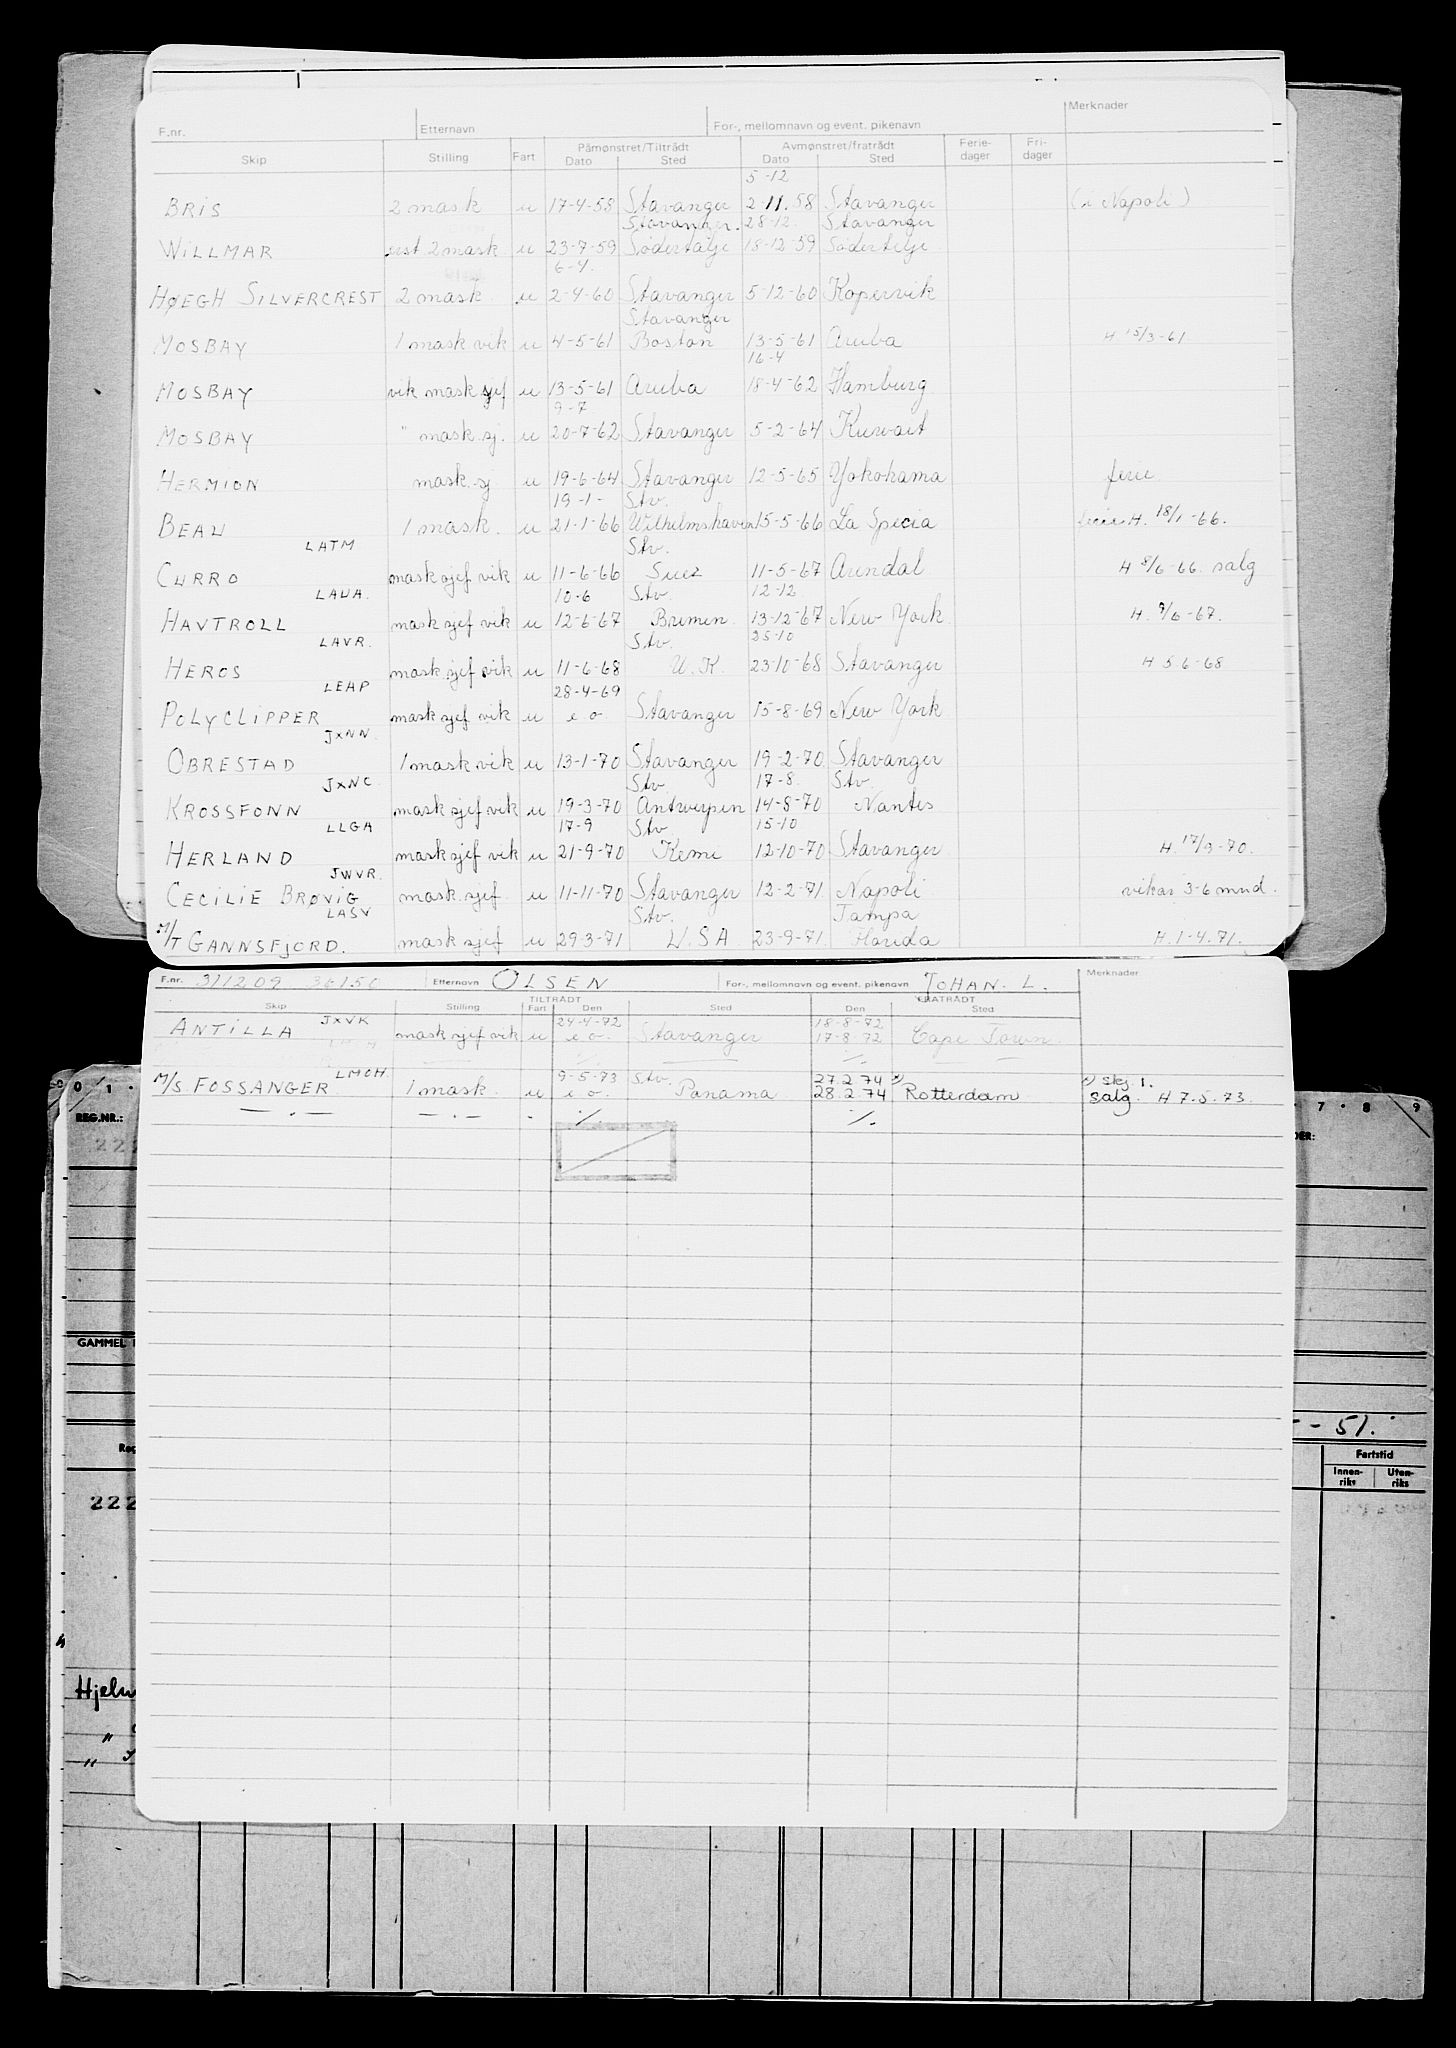 Merknader
F.nr. Etternavn For-, mellomnavn og event. pikenavn
Skip Stilling Fart Påmønstret/Tiltrådt Dato Sted Avmønstret/fratrådt Dato Sted Ferie-dager Fri-dager
5-12
BRIS 2 mask u 17-4-58 Stavanger 2-11.58 Stavanger (i Napoli)
Stavanger. 28-12. Stavanger
WILLMAR 2 mask u 23-7-59 Södertälje 18-12-59 Södertelje
6-4.
HØEGH SILVERCREST 2 mask. u 2-4-60 Stavanger 5-12-60 Kopervik
Stavanger
MOSBAY 1 mask vik u 4-5-61 Boston 13-5-61 Aruba H 15/3-61
16-4
MOSBAY vik mask sjef u 13-5-61 Aruba 18-4-62 Hamburg
9-7
MOSBAY " mask.sj. u 20-7-62 Stavanger 5-2-64 Kuwait
HERMION mask.sj u 19-6-64 Stavanger 12-5-65 Yokohama ferie
19-1- Stv.
BEAU 1 mask. u 21-1-66 Wilhelmshaven 15-5-66 La Specia H. 18/1-66.
LATM Stv.
CURRO mask sjef vik u 11-6-66 Suez 11-5-67 Arendal H 8/6-66. salg
LAUA. 10-6 Stv. 12-12
HAVTROLL mask sjef vik u 12-6-67 Bremen. 13-12-67 New York. H. 9/6-67.
LAVR. Stv. 25-10
HEROS mask sjef vik u 11-6-68 U.K. 23-10-68 Stavanger H 5 6-68
LEAP 28-4-69
POLYCLIPPER mask sjef vik u e o Stavanger 15-8-69 New York
JXNN.
OBRESTAD 1 mask vik u 13-1-70 Stavanger 19-2-70 Stavanger
JXNC Stv. 17-8. Stv.
KROSSFONN mask sjef vik u 19-3-70 Antwerpen 14-8-70 Nantes
LLGA 17-9 Stv. 15-10
HERLAND mask sjef vik u 21-9-70 Kemi 12-10-70 Stavanger H. 17/9-70.
JWVR.
CECILIE BRØVIG mask.sjef. u 11-11-70 Stavanger 12-2-71 Napoli vikar 3-6 mnd.
LASV Stv. Tampa
M/T GANNSFJORD. mask sjef u 29-3-71 U.S.A 23-9-71 Florida H.1-4.71.
F.nr. 311209 36150 Etternavn OLSEN For-, mellomnavn og event. pikenavn JOHAN. L. Merknader
Skip Stilling TILTRÅDT Fart Den Sted FRATRÅDT Den Sted
JXVK 24-4-72 18-8-72
ANTILLA mask sjef vik u e o. Stavanger 17-8-72 Cape Town.
LMOH. 9-5-73 Stv. 27.2.74 x) x) skj. 1.
M/S. FOSSANGER 1 mask. u e o. Panama 28.2.74 Rotterdam salg. H 7.5.73.
— . — — . — - ./. ./.
0 1 7 • 8 9
REG.NR.:
222
GAMMEL
- - 51.
Fartstid
Innen-riks Uten-riks
222
Hjelm
"
"